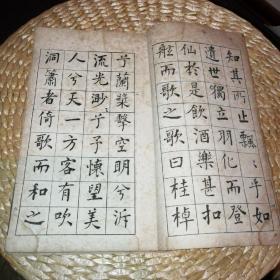 知其所止飄〻乎如
遺世獨立羽化而登
仙於是飲酒樂甚扣
舷而歌之歌曰桂棹
兮蘭槳擊空明兮泝
流光渺〻兮予懷望美
人兮天一方客有吹
洞蕭者倚歌而和之